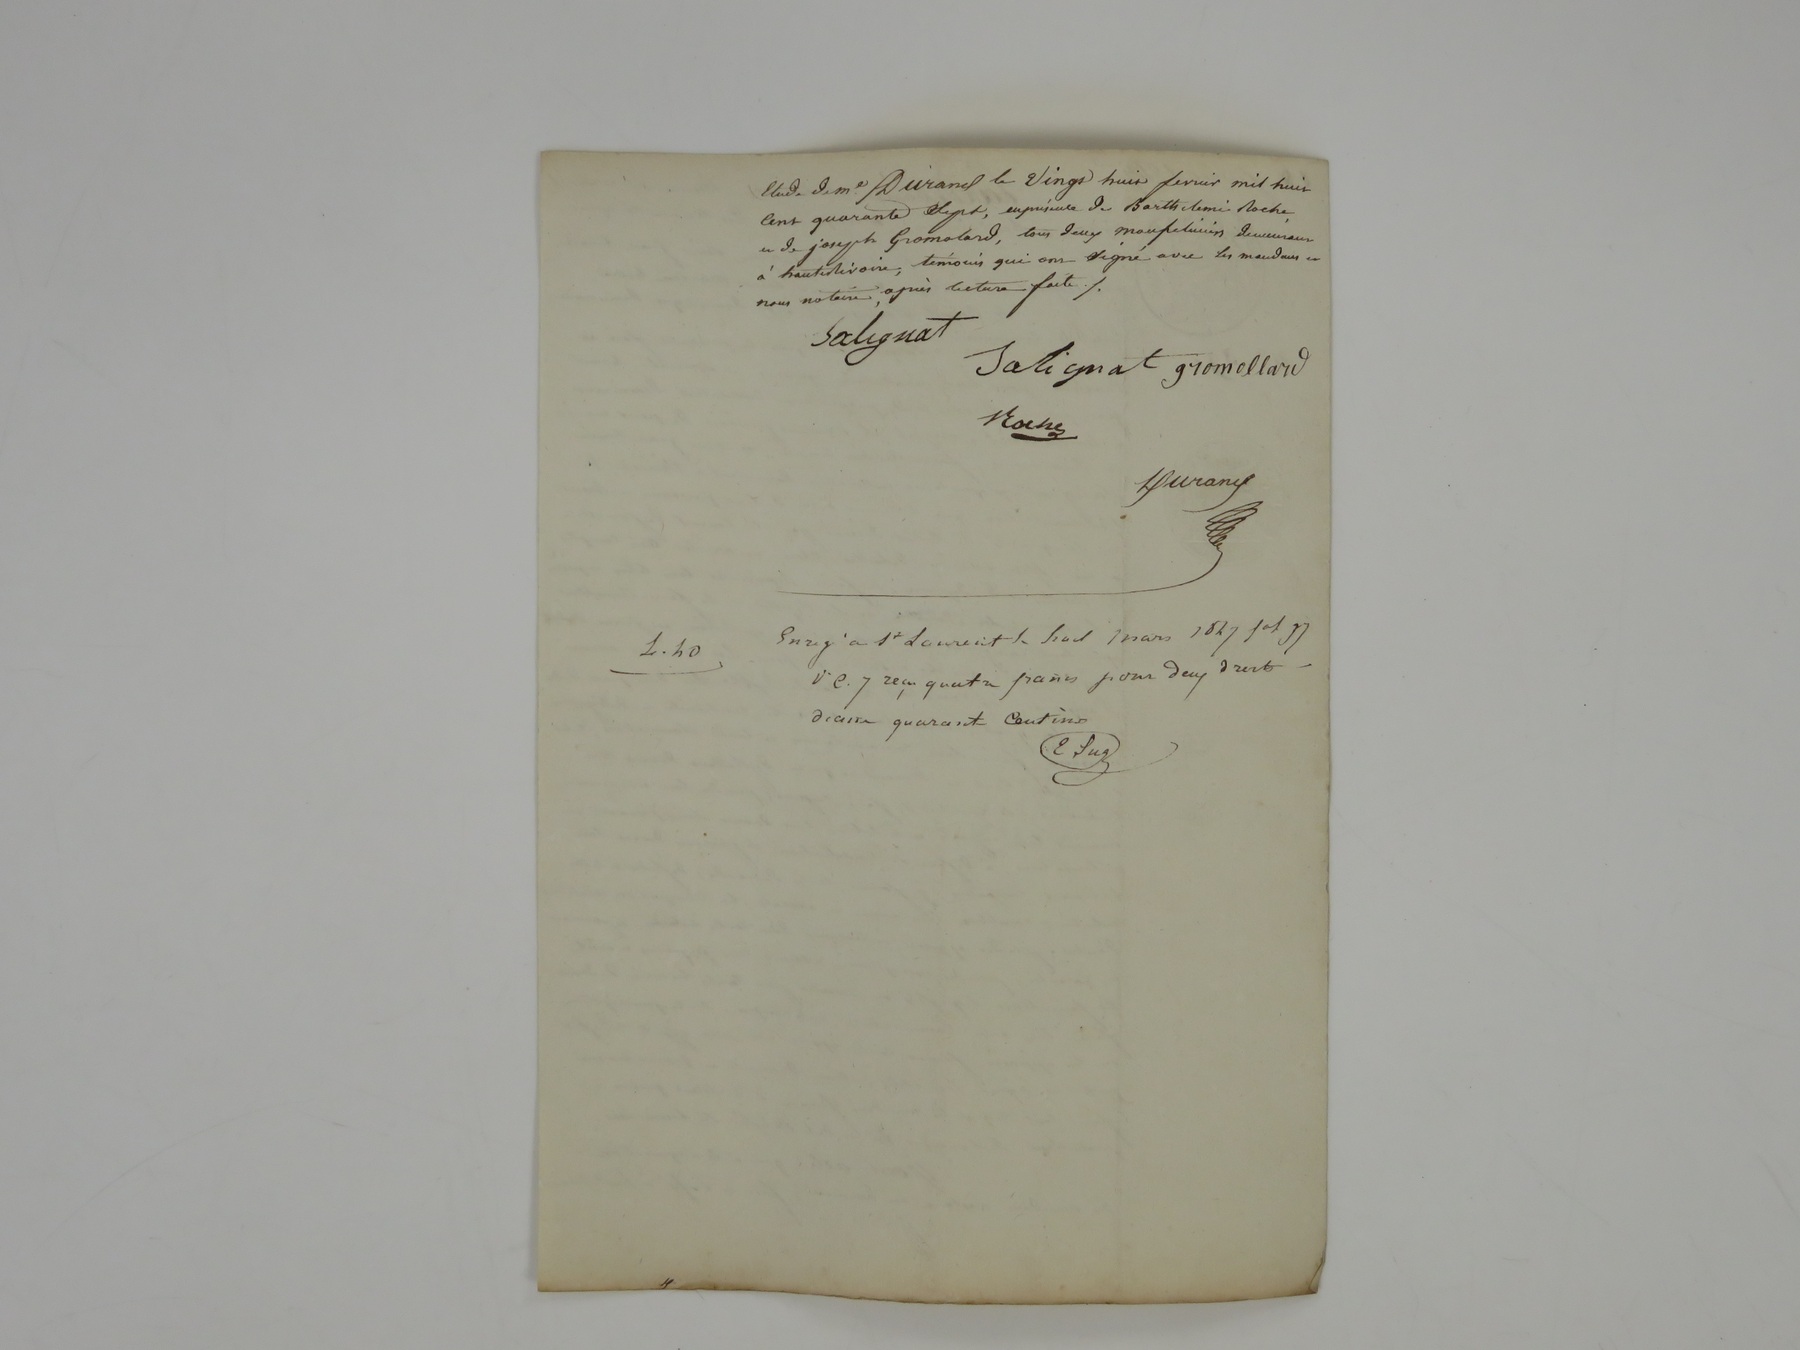 Etude de me Durand le vingt huit fevrier mil huit
cent quarante sept, en présence de Barthelemi Roche
et de joseph Gromolard, tous deux demeurant
à hauterivoire, temoins qui ont signé avec les mandans et
nous notaire, après lecture faite ./.
Salignat
Salignat gromollard
Roche
Durand
4.40
Enreg. a St Laurent le huit mars 1847 fol 97
Vo C. 7 reçu quatre francs pour deux droits
decime quarante centimes